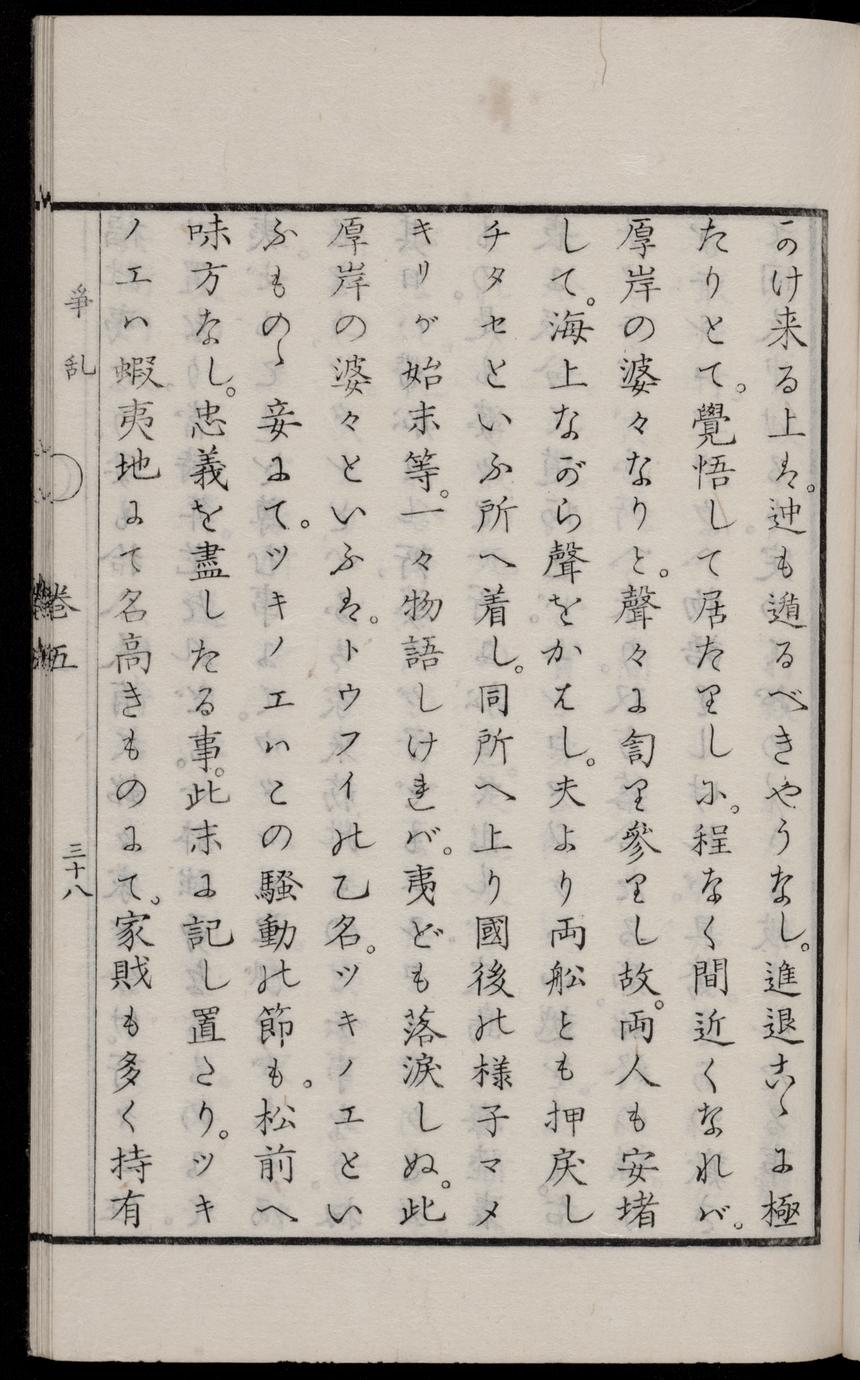 かけ来る上は。迚も遁るべきやうなし。進退こゝに極
たりとて。覺悟して居たりしに。程なく間近くなれバ。
厚岸の婆々なりと。聲々に訇り參りし故。両人も安堵
して。海上ながら聲をかはし。夫より両舩とも押戻し
チタセといふ所へ着し。同所へ上り國後の様子マメ
キリが始末等。一々物語しけれバ。夷ども落淚しぬ。此
厚岸の婆々といふは。トウフイの乙名。ツキノエとい
ふものゝ妾にて。ツキノエハこの騒動の節も。松前へ
味方なし。忠義を盡したる事。此末に記し置たり。ツキ
ノエハ蝦夷地にて名高きものにて。家賊も多く持有
爭乱
卷五
三十八